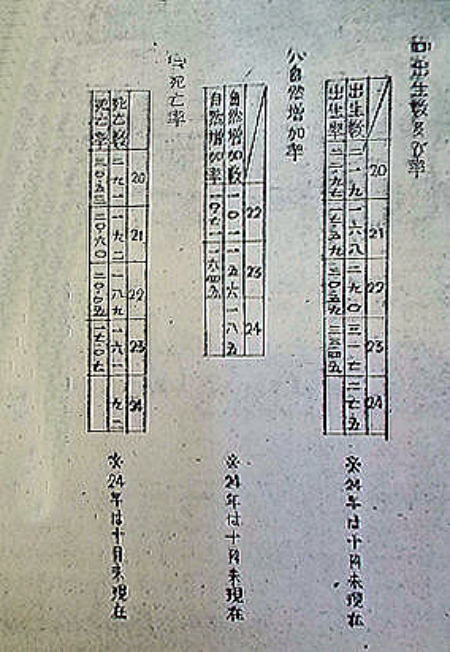 出生数及び率
20 21 22 23 24
出生数 二一九 一六八 二九〇 三一七 二七五
出生率 二二・九七 一七・五九 三〇・五九 三三・四五
※24年は十月末現在
(ハ)自然増加率
22 23 24
自然増加数 一〇一 一五六 一八五
自然増加率
※24年は十月末現在
死亡率
20 21 22 23 24
死亡数 二九一 一九二 一八九 一六一 九二
死亡率 三〇・五三 二〇・六〇 二〇・〇五 一七・〇七
※24年は十月末現在